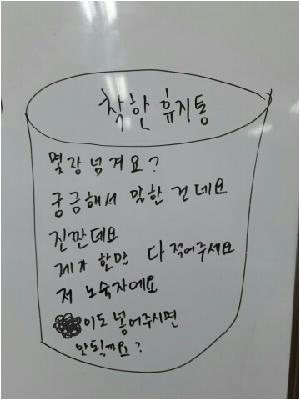 착한 휴지통
몇 장 넘겨요?
궁금해서 말한 건네요
진짠데요
제가 한만 다 적어주세요
저 노숙자에요
이도 넣어주시면
안될까요?